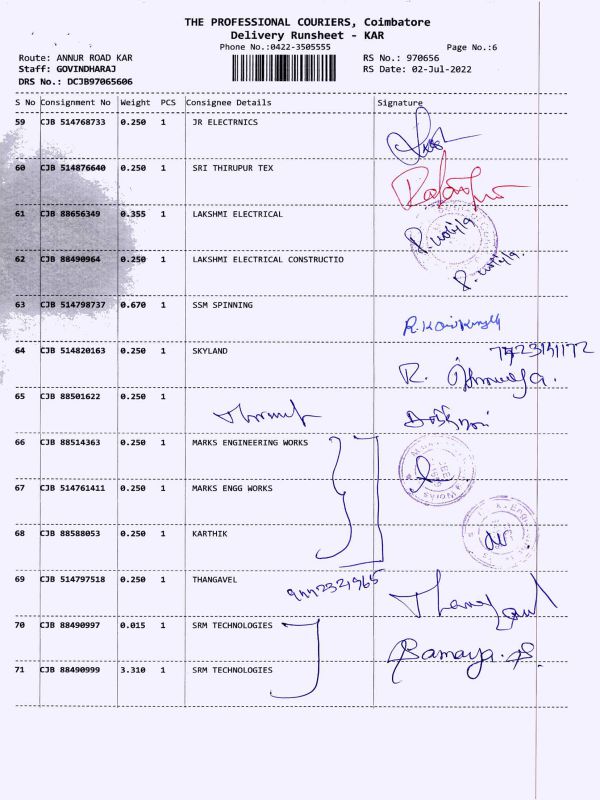 THE PROFESSIONAL COURIERS, Coimbatore
Delivery Runsheet - KAR
Phone No.:0422-3505555
Page No.:6
Route: ANNUR ROAD KAR
RS No.: 970656
Staff: GOVINDHARAJ
RS Date: 02-Jul-2022
DRS No.: DCJB97065606
S No Consignment No Weight PCS Consignee Details Signature
59 CJB 514768733 0.250 1 JR ELECTRNICS
60 CJB 514876640 0.250 1 SRI THIRUPUR TEX
61 CJB 88656349 0.355 1 LAKSHMI ELECTRICAL
62 CJB 88490964 0.250 1 LAKSHMI ELECTRICAL CONSTRUCTIO
63 CJB 514798737 0.670 1 SSM SPINNING
64 CJB 514820163 0.250 1 SKYLAND
65 CJB 88501622 0.250 1
66 CJB 88514363 0.250 1 MARKS ENGINEERING WORKS
67 CJB 514761411 0.250 1 MARKS ENGG WORKS
68 CJB 88588053 0.250 1 KARTHIK
69 CJB 514797518 0.250 1 THANGAVEL
70 CJB 88490997 0.015 1 SRM TECHNOLOGIES
Ramaya. S.
71 CJB 88490999 3.310 1 SRM TECHNOLOGIES